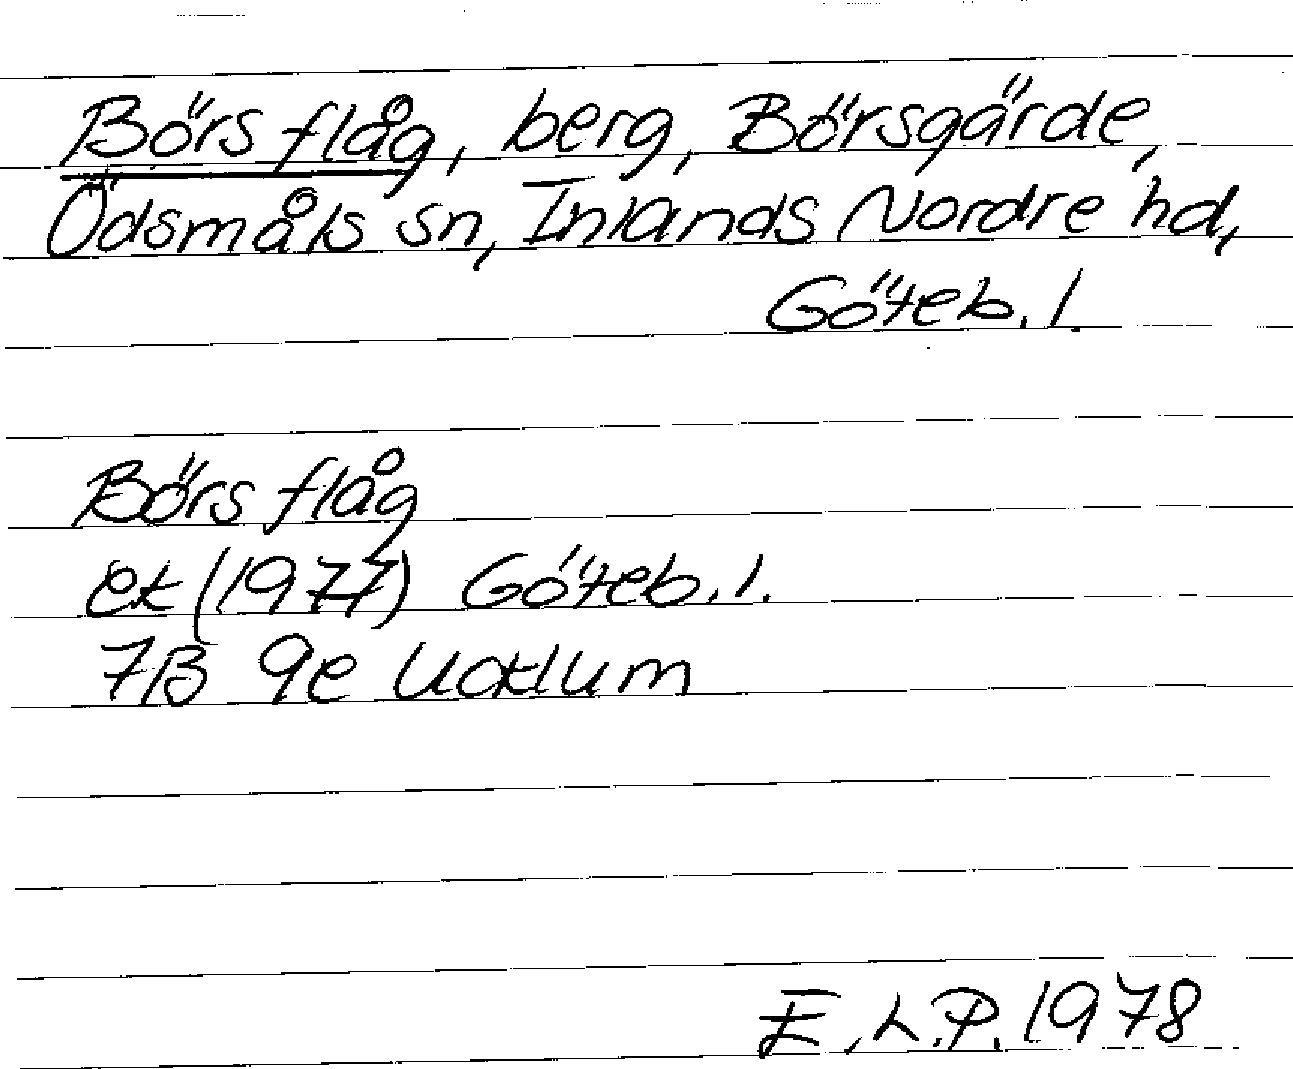 Börs flåg, berg, Börsgärde,
Ödsmåls sn, Inlands Nordre hd,
Göteb. l.
Börs flåg
ek (1977) Göteb. l.
7B 9e Ucklum
E.L.P. 1978